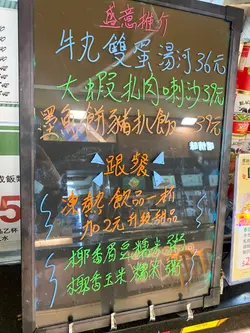 盛意推介
牛丸雙蛋湯河36元
大蝦扎肉喇沙39元
墨魚餅豬扒飯39元
跟餐
凍熱飲品一杯
加2元升級甜品
椰香眉豆糯米粥
椰香玉米糯米粥